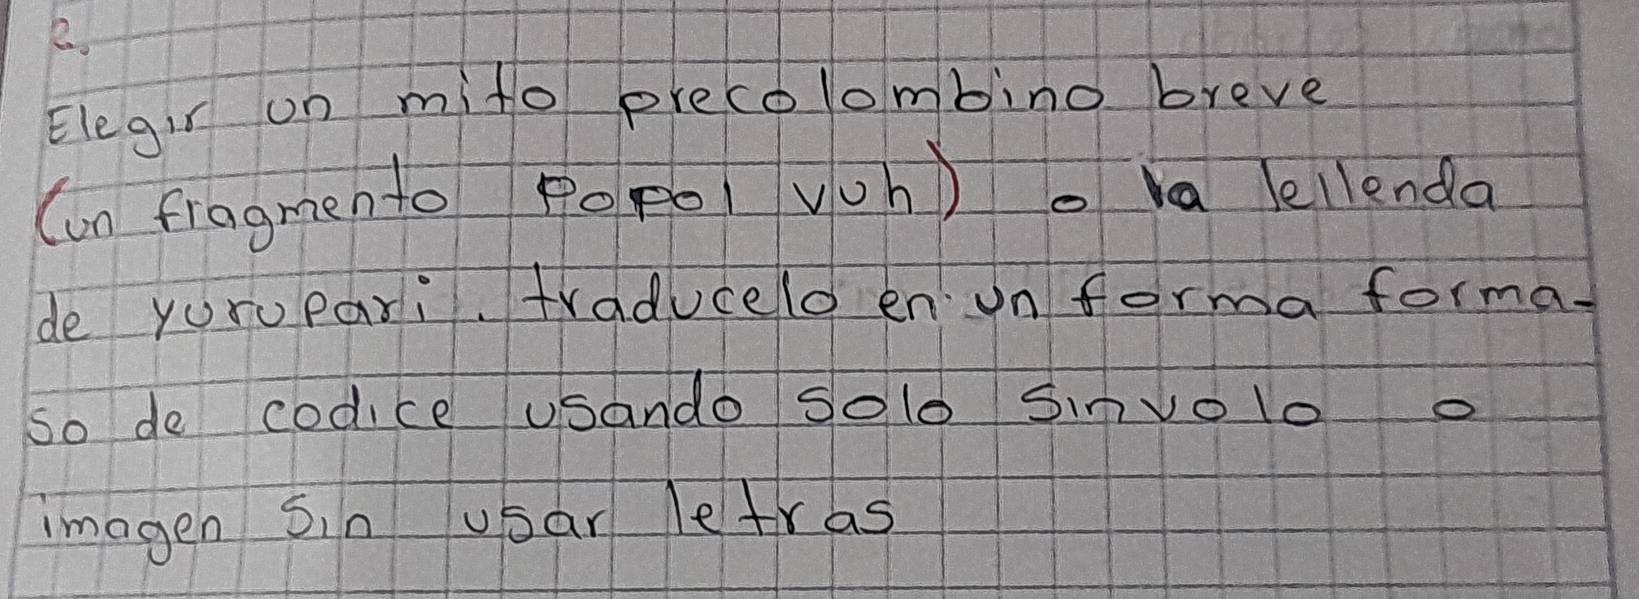 2.
Elegir un mito precolombino breve
(un fragmento Popol vuh) o la lellenda
de yurupari. traducelo en un forma forma-
so de codice usando solo sinvolo o
imagen sin usar letras